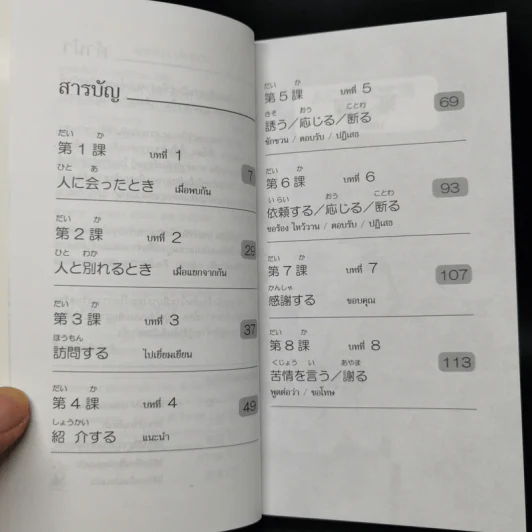 สารบัญ
だい か
第 1 課 บทที่ 1
7
ひと あ
人に会ったとき เมื่อพบกัน
だい か
第 2 課 บทที่ 2
29
ひと わか
人と別れるとき เมื่อแยกจากกัน
だい か
第 3 課 บทที่ 3
37
ほうもん
訪問する ไปเยี่ยมเยียน
だい か
第 4 課 บทที่ 4
49
しょうかい
紹 介する แนะนำ
だい か
第 5 課 บทที่ 5
69
さそ おう ことわ
誘う／応じる／断る
ชักชวน / ตอบรับ / ปฏิเสธ
だい か
第 6 課 บทที่ 6
93
いらい おう ことわ
依頼する／応じる／断る
ขอร้อง ไหว้วาน / ตอบรับ / ปฏิเสธ
だい か
第 7 課 บทที่ 7
107
かんしゃ
感謝する ขอบคุณ
だい か
第 8 課 บทที่ 8
113
くじょう い あやま
苦情を言う／謝る
พูดต่อว่า / ขอโทษ